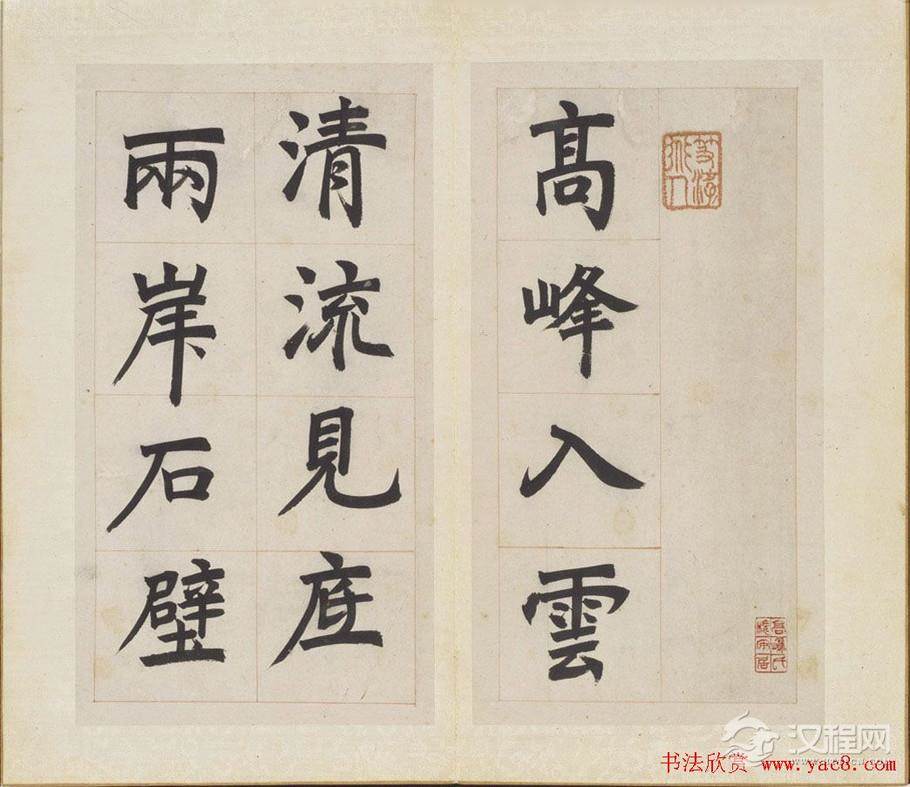 髙峰入雲
清流見底
兩岸石壁
书法欣赏 www.yac8.com
汉程网